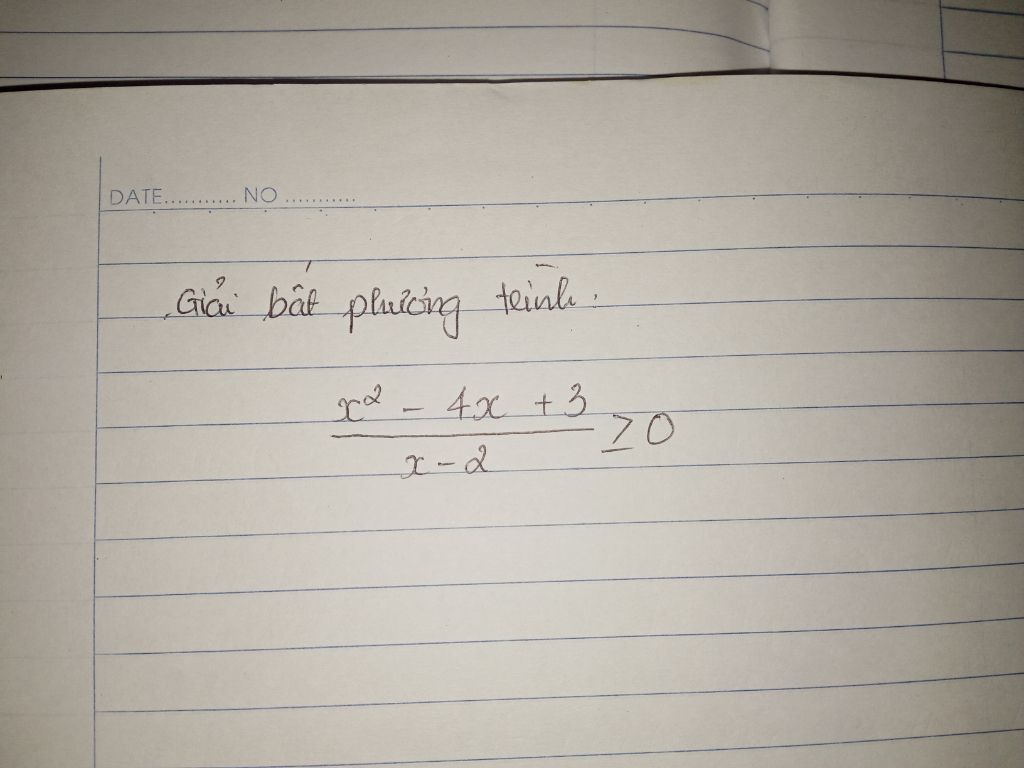 DATE........... NO ...........
Giải bất phương trình:
x² - 4x + 3
x - 2
≥ 0